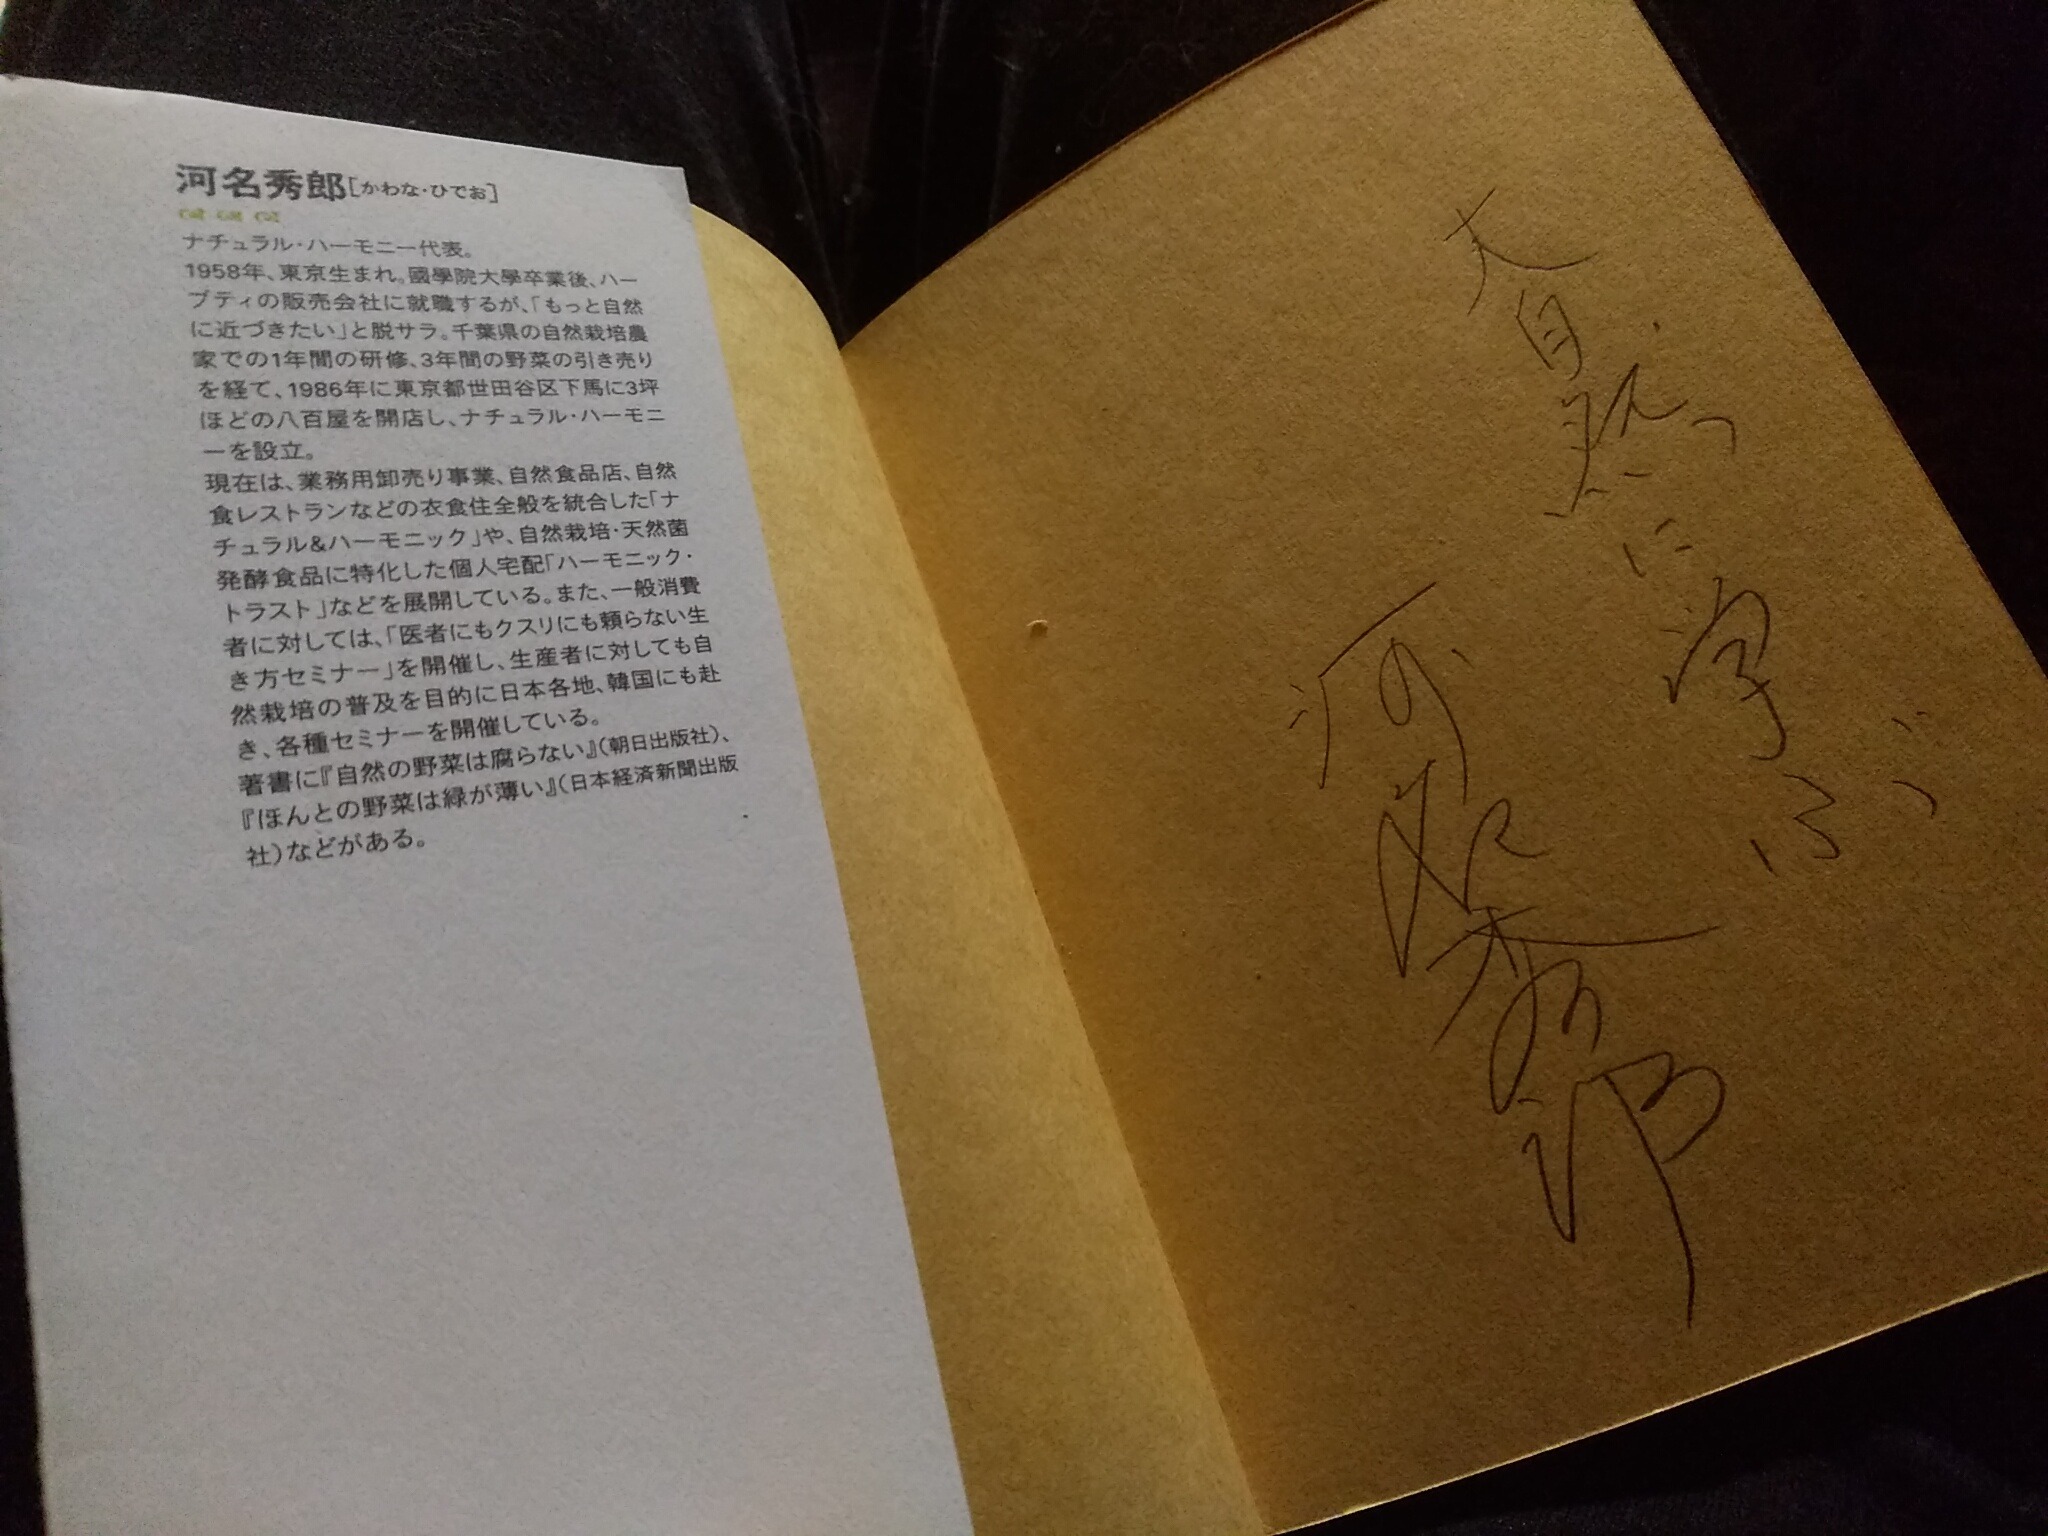 河名秀郎[かわな・ひでお]
ナチュラル・ハーモニー代表。
1958年、東京生まれ。國學院大學卒業後、ハー
ブティの販売会社に就職するが、「もっと自然
に近づきたい」と脱サラ。千葉県の自然栽培農
家での1年間の研修、3年間の野菜の引き売り
を経て、1986年に東京都世田谷区下馬に3坪
ほどの八百屋を開店し、ナチュラル・ハーモニ
ーを設立。
現在は、業務用卸売り事業、自然食品店、自然
食レストランなどの衣食住全般を統合した「ナ
チュラル&ハーモニック」や、自然栽培・天然菌
発酵食品に特化した個人宅配「ハーモニック・
トラスト」などを展開している。また、一般消費
者に対しては、「医者にもクスリにも頼らない生
き方セミナー」を開催し、生産者に対しても自
然栽培の普及を目的に日本各地、韓国にも赴
き、各種セミナーを開催している。
著書に『自然の野菜は腐らない』(朝日出版社)、
『ほんとの野菜は緑が薄い』(日本経済新聞出版
社)などがある。
大自然に学ぶ
河名秀郎